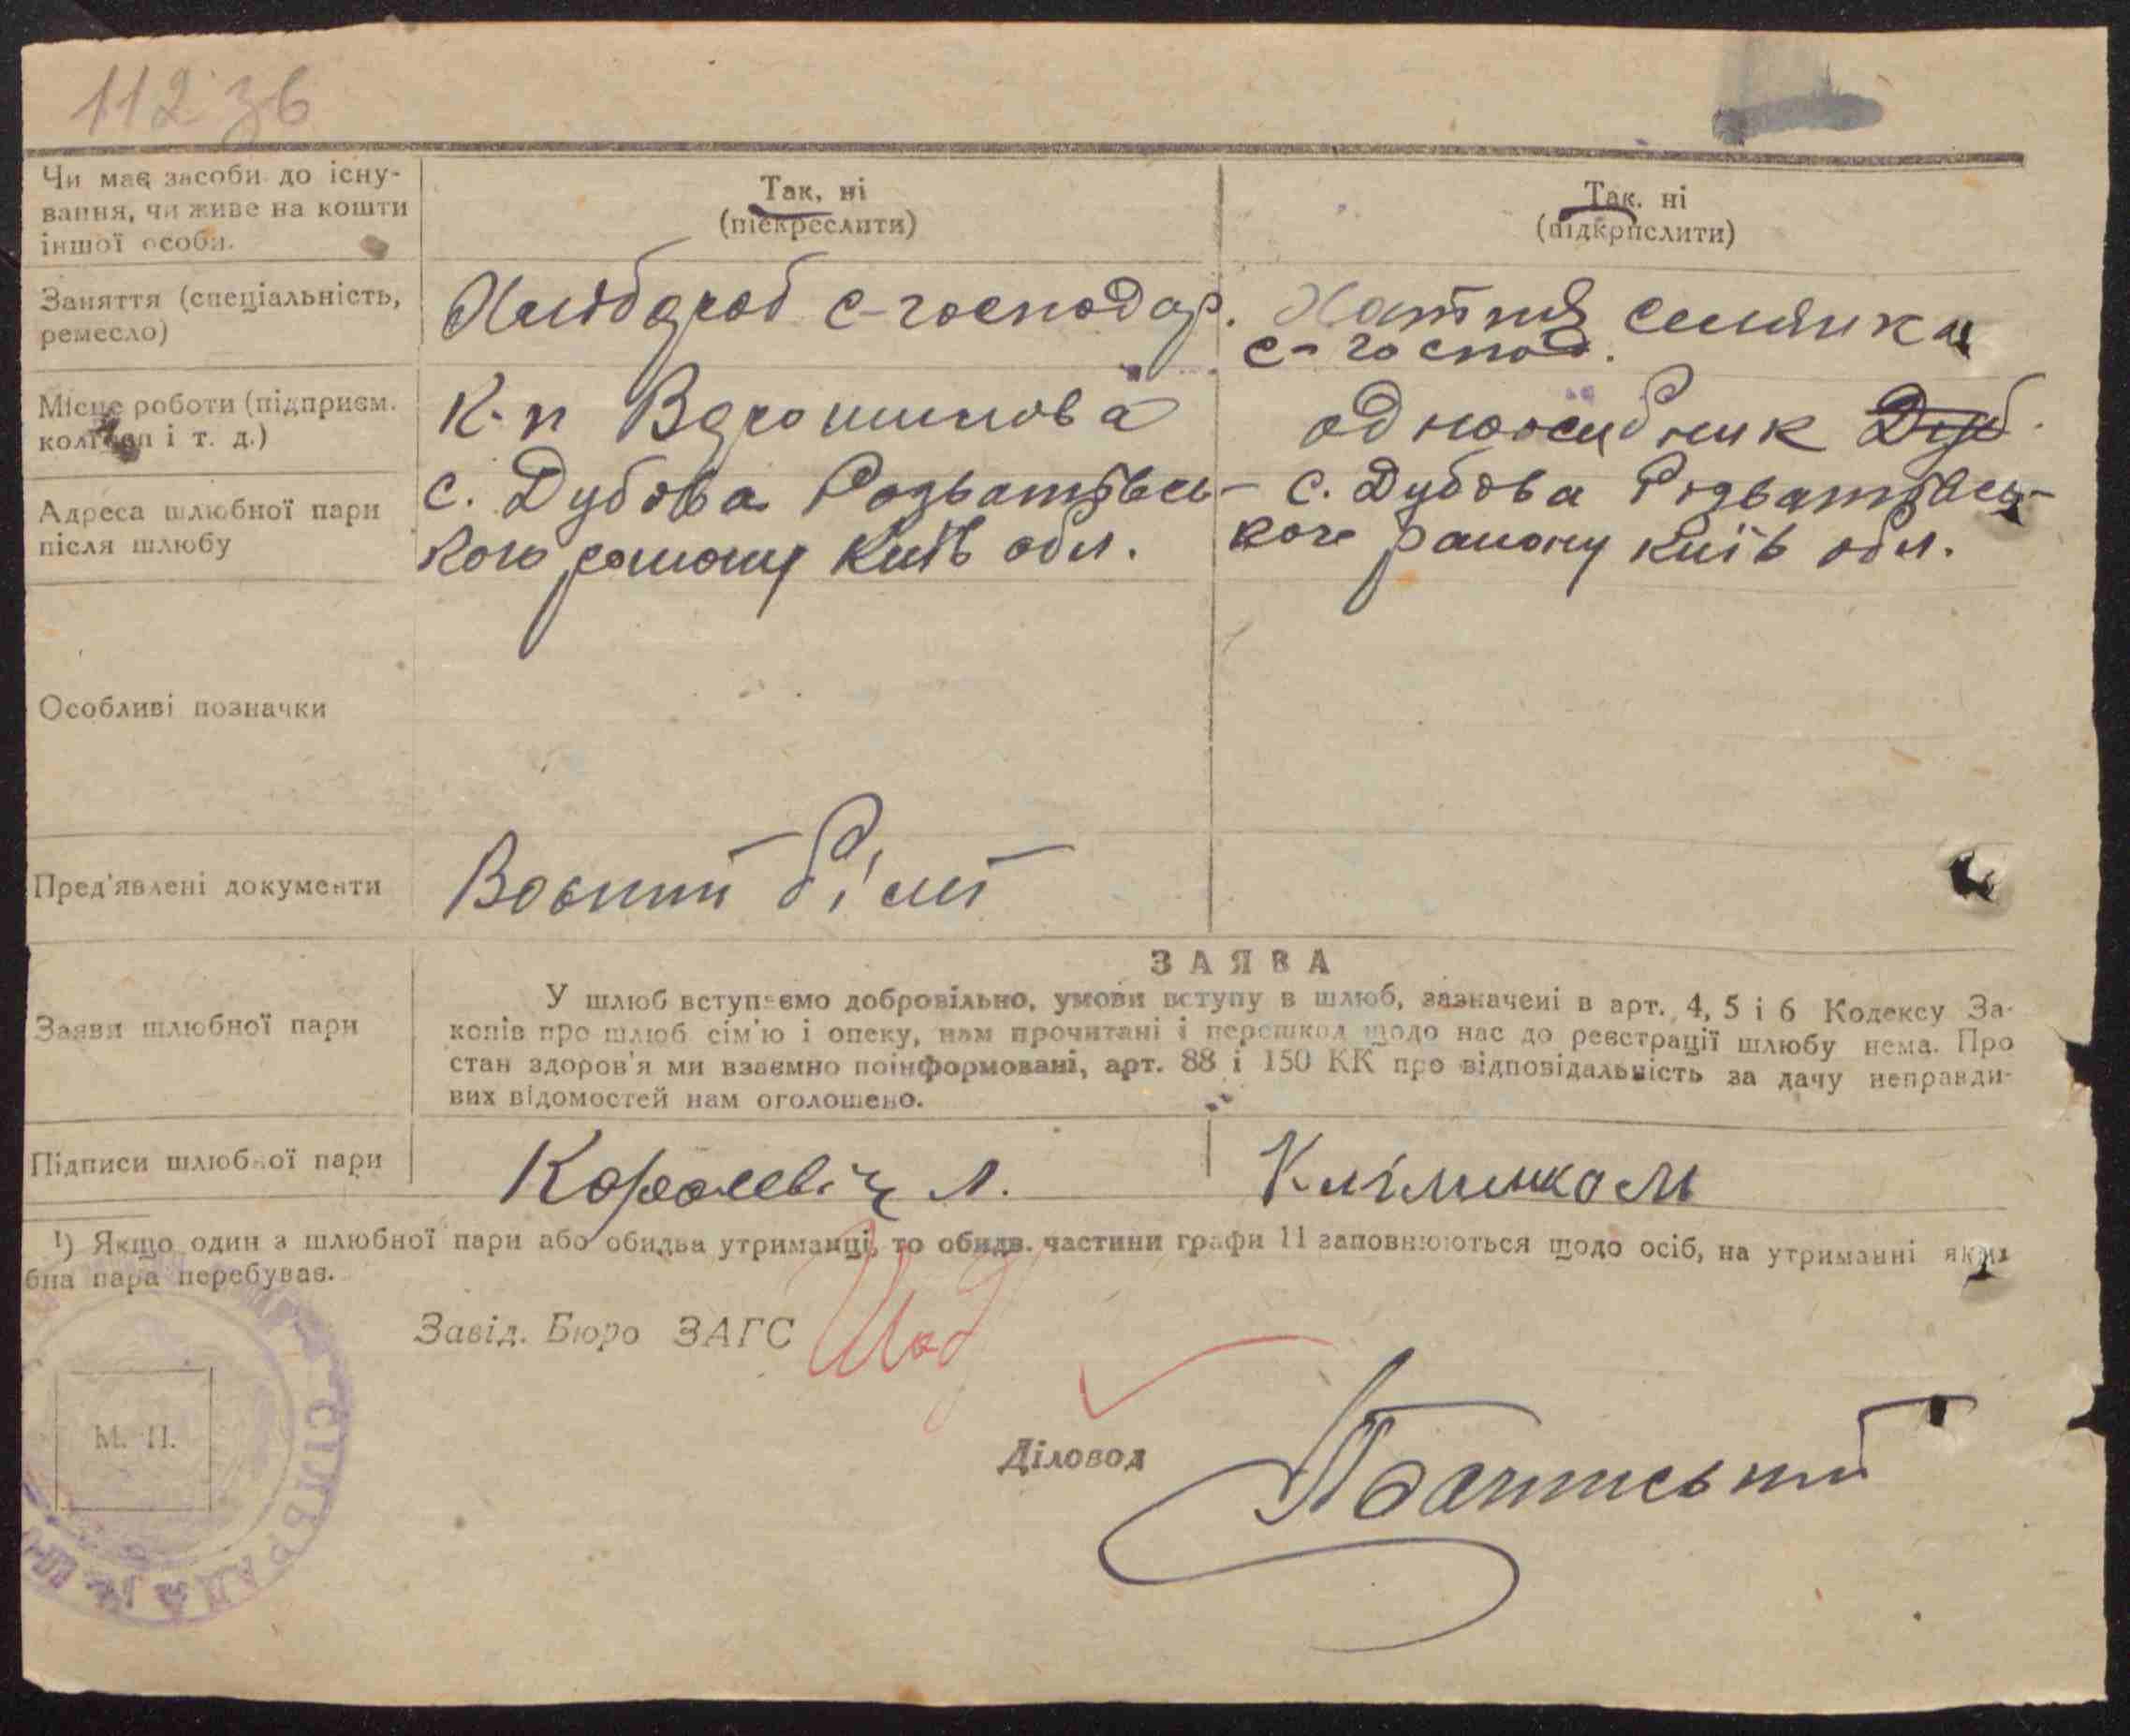 112 зв
Чи має засоби до існу-
вання, чи живе на кошти
іншої особи.
Так, ні
(піекреслити)
Так. ні
(підкрислити)
Заняття (спеціальність,
ремесло)
Хлібороб с-господар.
Хатня селянка
с-господ.
Місце роботи (підприєм.
колгосп і т. д.)
К-п Ворошилова
одноосібник
Адреса шлюбної пари
після шлюбу
с. Дубова Розватівсь-
кого району Київ обл.
с. Дубова Розватівсь-
кого району Київ обл.
Особливі позначки
Пред'явлені документи
Воєний білет
Заяви шлюбної пари
ЗАЯВА
У шлюб вступаємо добровільно, умови вступу в шлюб, зазначені в арт. 4, 5 і 6 Кодексу За-
конів про шлюб сім'ю і опеку, нам прочитані і перешкод щодо нас до реєстрації шлюбу нема. Про
стан здоров'я ми взаємно поінформовані, арт. 88 і 150 КК про відповідальність за дачу неправди-
вих відомостей нам оголошено.
Підписи шлюбної пари
Королевіч Л.
Клімінко М
¹) Якщо один з шлюбної пари або обидва утриманці, то обидв. частини графи 11 заповнюються щодо осіб, на утриманні яких
бна пара перебуває.
Завід. Бюро ЗАГС
М. П.
СІЛЬРАДА
Діловод